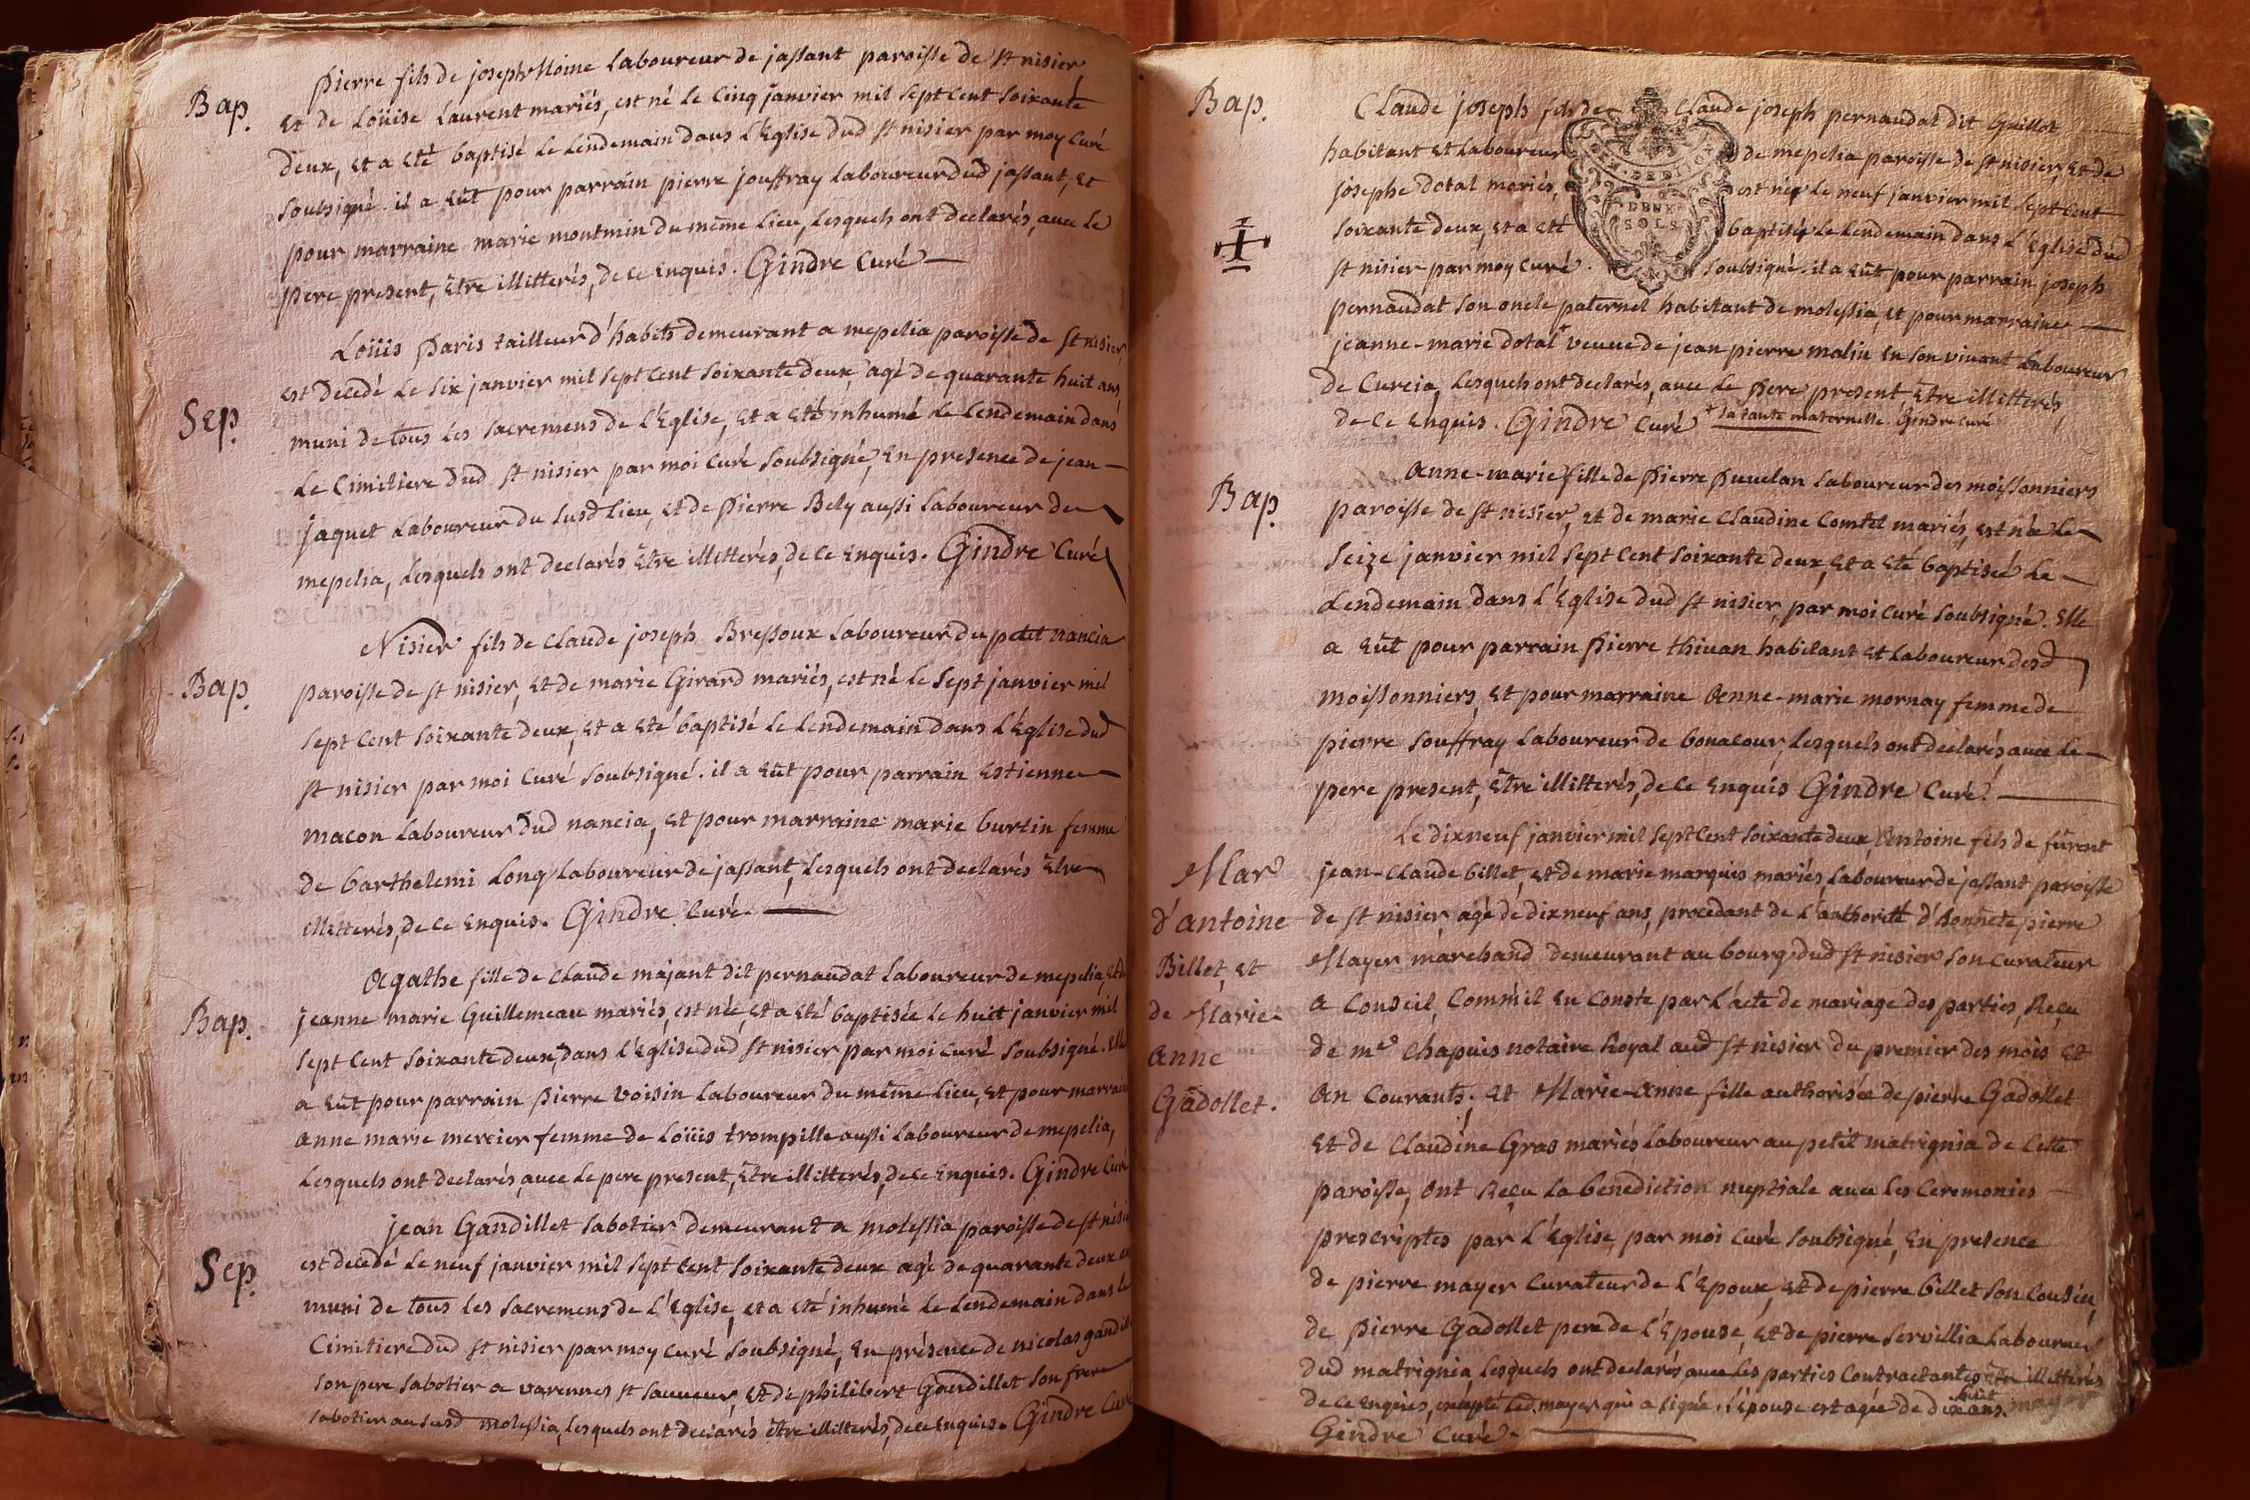 Bap.
Pierre fils de joseph Moine laboureur de jassant paroisse de st nisier
et de Loüise Laurent mariés, est né le cinq janvier mil sept cent soixante
deux, et a eté baptisé le lendemain dans l'Eglise dud st nisier par moy curé
soubsigné. il a eût pour parrain pierre jouffray laboureur dud jassant, et
pour marraine marie montmin du même lieu, lesquels ont declarés, avec le
pere present, Etre illitterés, de ce enquis. Gindre curé
Sep.
Loüis Paris tailleur d'habits demeurant a mepelia paroisse de st nisier,
est decedé le six janvier mil sept cent soixante deux, agé de quarante huit ans,
muni de tous les sacremens de l'Eglise, et a eté inhumé le lendemain dans
le cimitiere dud st nisier par moi curé soubsigné, en presence de jean
jaquet laboureur du susd lieu, et de pierre Bely aussi laboureur de
mepelia, lesquels ont declarés être illitterés, de ce enquis. Gindre Curé
Bap.
Nisier fils de claude joseph Bressoux laboureur du petit nancia
paroisse de st nisier, et de marie Girard mariés, est né le sept janvier mil
sept cent soixante deux, et a eté baptisé le lendemain dans l'Eglise dud
st nisier par moi curé soubsigné. il a eût pour parrain estienne
macon laboureur dud nancia, et pour marraine marie burtin femme
de barthelemi Long laboureur de jassant, lesquels ont declarés être
illitterés, de ce enquis. Gindre Curé
Bap.
Agathe fille de claude majant dit pernaudat laboureur de mepelia, et de
jeanne marie Guillemeau mariés, est née, et a eté baptisée le huit janvier mil
sept cent soixante deux, dans l'Eglise dud st nisier par moi curé soubsigné. Elle
a eût pour parrain pierre voisin laboureur du même lieu, et pour marraine
anne marie mercier femme de Loüis trompille aussi laboureur de mepelia,
lesquels ont declarés avec le pere present, Etre illitterés, de ce enquis. Gindre Curé
Sep.
jean Gandillet sabotier demeurant a molessia paroisse de st nisier
est decedé le neuf janvier mil sept cent soixante deux agé de quarante deux
muni de tous les sacremens de l'Eglise, et a eté inhumé le lendemain dans le
Cimitiere dud st nisier par moy curé soubsigné, en présence de nicolas gandillet
son pere sabotier a varennes st sauveur, et de philibert Gandillet son frere
sabotier au susd molessia, lesquels ont declarés être illitterés, de ce enquis. Gindre Curé
Bap.
Claude joseph fils de Claude joseph pernaudat dit Guillot
habitant et laboureur de mepelia paroisse de st nisier, et de
josephe dotal mariés, est né le neuf janvier mil sept cent
soixante deux, et a eté baptisé le lendemain dans l'Eglise dud
st nisier par moy curé soubsigné. il a eût pour parrain joseph
DEUX
SOLS
pernaudat son oncle paternel habitant de molessia, et pour marraine
jeanne-marie dotal + veuve de jean pierre malin en son vivant laboureur
de Curcia, lesquels ont declarés, avec le pere present Etre illitterés,
de ce enquis. Gindre curé + sa tante maternelle. Gindre curé
Bap.
Anne-marie fille de pierre Puvelan laboureur des moissonniers
paroisse de st nisier, et de marie claudine Comtet mariés, est née le
seize janvier mil sept cent soixante deux, et a eté baptisée le
lendemain dans l'Eglise dud st nisier, par moi curé soubsigné. Elle
a eût pour parrain pierre thivan habitant et laboureur desd
moissonniers, et pour marraine Anne-marie mornay femme de
pierre Jouffray laboureur de bonacour, lesquels ont declarés avec le
pere present, Etre illitterés, de ce enquis Gindre Curé.
Mar
d'antoine
Billet, et
de Marie-
anne
Gadollet.
Le dixneuf janvier mil sept cent soixante deux, Antoine fils de fûrent
jean-claude billet, et de marie marquis mariés, laboureur de jassant paroisse
de st nisier, agé de dixneuf ans, procedant de l'authorité d'honnête pierre
Mayer marchand demeurant au bourg dud st nisier son curateur
a conseil, comm'il en conste par l'acte de mariage des parties, Reçu
de me Chapuis notaire Royal aud st nisier du premier des mois et
an courants. et Marie-anne fille authorisée de pierre Gadollet
et de Claudine Gras mariés laboureur au petit matrignia de cette
paroisse, ont Reçu la benediction nuptiale avec les ceremonies
prescriptes par l'Eglise, par moi curé soubsigné, en presence
de pierre mayer curateur de l'Epoux, et de pierre billet son cousin,
de pierre Gadollet pere de l'Epouse, et de pierre servillia laboureur
dud matrignia lesquels ont declarés avec les parties contractantes Etre illitterés
de ce enquis, excepté led. mayer qui a signé. l'épouse est agée de dix huit ans. mayer
Gindre Curé.